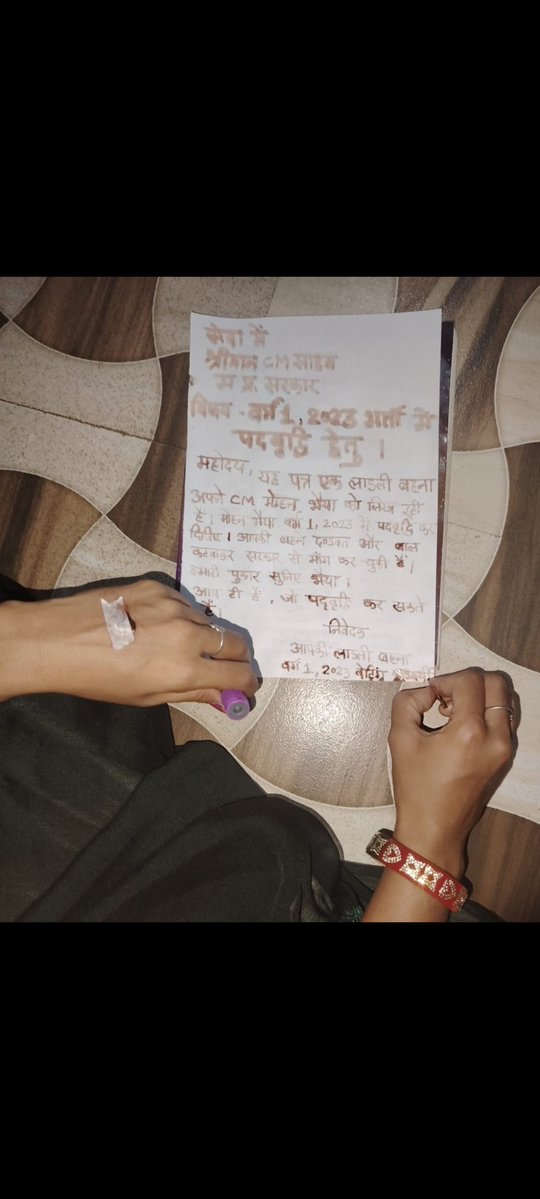 सेवा में
श्रीमान CM साहब
म प्र सरकार
विषय - वर्ग 1, 2023 भर्ती में
पदवृद्धि हेतु ।
महोदय, यह पत्र एक लाडली बहना
अपने CM मोहन भैया को लिख रही
है । मोहन भैया वर्ग 1, 2023 में पदवृद्धि कर
दिजिए । आपकी बहन दण्डवत और बाल
कटवाकर सरकार से माँग कर चुकी है ।
हमारी पुकार सुनिए भैया ।
आप ही है , जो पदवृद्धि कर सकते
हैं ।
निवेदक
आपकी लाडली बहना
वर्ग 1, 2023 वेटिंग